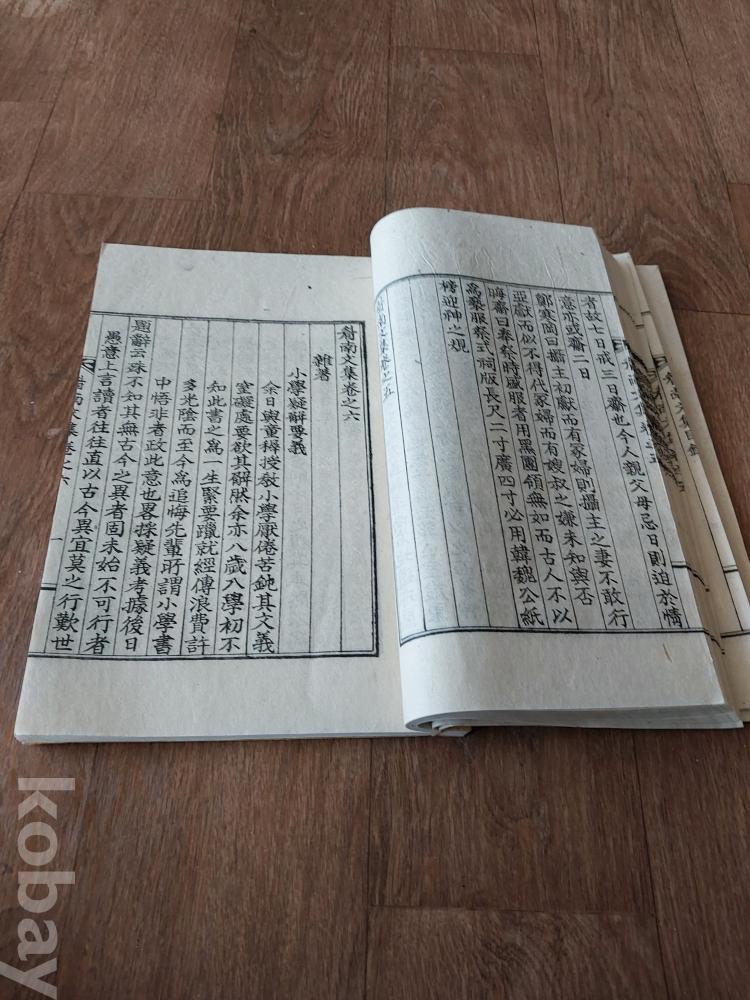 者故七日戒三日齋也今人親父母忌日則迫於情
意亦或齋二日
鄭寒岡曰攝主初獻而有冢婦則攝主之妻不敢行
亞獻而似不得代冢婦而有嫂叔之嫌未知與否
晦齋曰奉祭時盛服者用黑團領無如而古人不以
爲褻服祭式祠版長尺二寸廣四寸必用韓魏公紙
榜迎神之規
南文集卷之五
南文集卷之六
雜著
小學疑辭要義
余日與童稺授敎小學厭倦苦鈍其文義
窒礙處要欲其辭然余亦八歲入學初不
知此書之爲一生緊要躐就經傳浪費許
多光陰而至今爲追悔先輩所謂小學書
中悟非者政此意也畧採疑義考據後日
題辭云殊不知其無古今之異者固未始不可行者
愚意上言讀者往往直以古今異宜莫之行歎世
南文集卷之六
南文集目錄
kobay